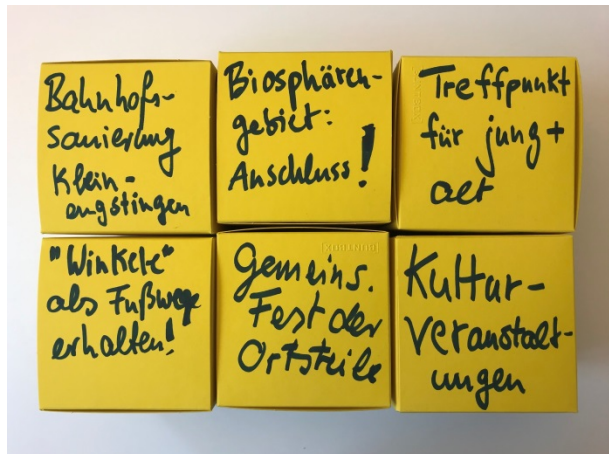 Bahnhofs-
sanierung
Klein-
engstingen
Biosphären-
gebiet:
Anschluss!
Treffpunkt
für jung +
alt
"Winkele"
als Fußwege
erhalten!
Gemeins.
Fest der
Ortsteile
Kultur-
veranstalt-
ungen